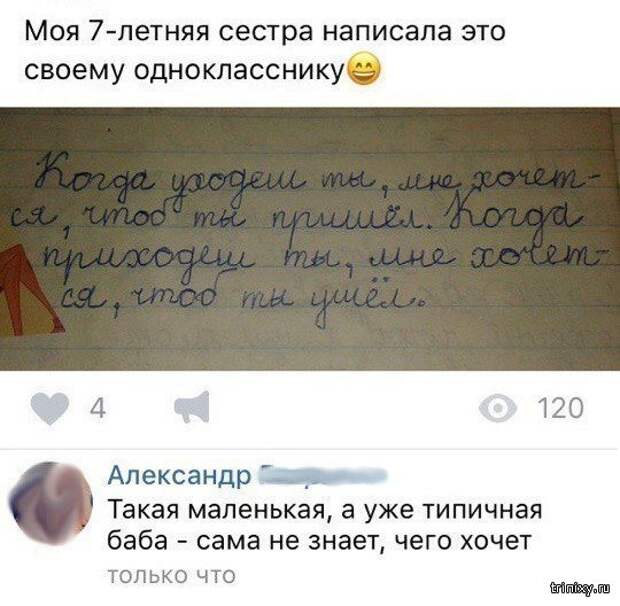 Моя 7-летняя сестра написала это
своему однокласснику😄
Когда уходеш ты, мне хочет-
ся, чтоб ты пришёл. Когда
приходеш ты, мне хочет-
ся, чтоб ты ушёл.
4
120
Александр
Такая маленькая, а уже типичная
баба - сама не знает, чего хочет
только что
trinixy.ru